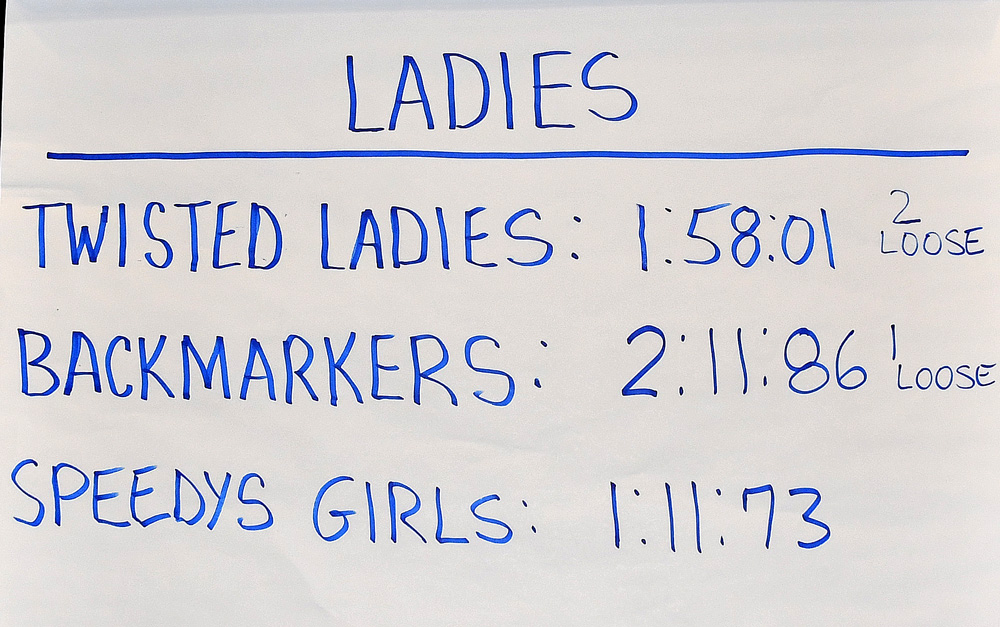 LADIES
TWISTED LADIES: 1:58:01 2 LOOSE
BACKMARKERS: 2:11:86 1 LOOSE
SPEEDYS GIRLS: 1:11:73